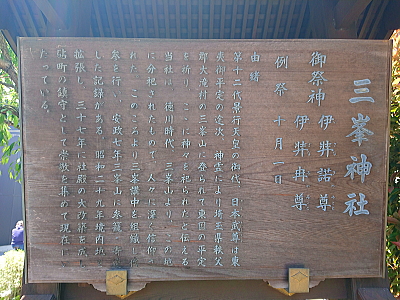 三峯神社
御祭神 伊弉諾尊
伊弉冉尊
例祭 十月一日
由緒
第十二代景行天皇の御代、日本武尊は東
夷御平定の途次、神霊により埼玉県秩父
郡大滝村の三峯山に登られて東国の平定
を祈り、ここに神々を祀られたと伝える
当社は、徳川時代、三峯山よりこの地
に分祀されたもので、人々に深く信仰さ
れた。このころより三峯講中を組織し代
参を行い、安政七年三峯山に参籠、奉
した記録がある。昭和二十九年境内地
拡張し、三十七年に社殿の大改築を成し
町の鎮守として崇敬を集めて現在に
たっている。